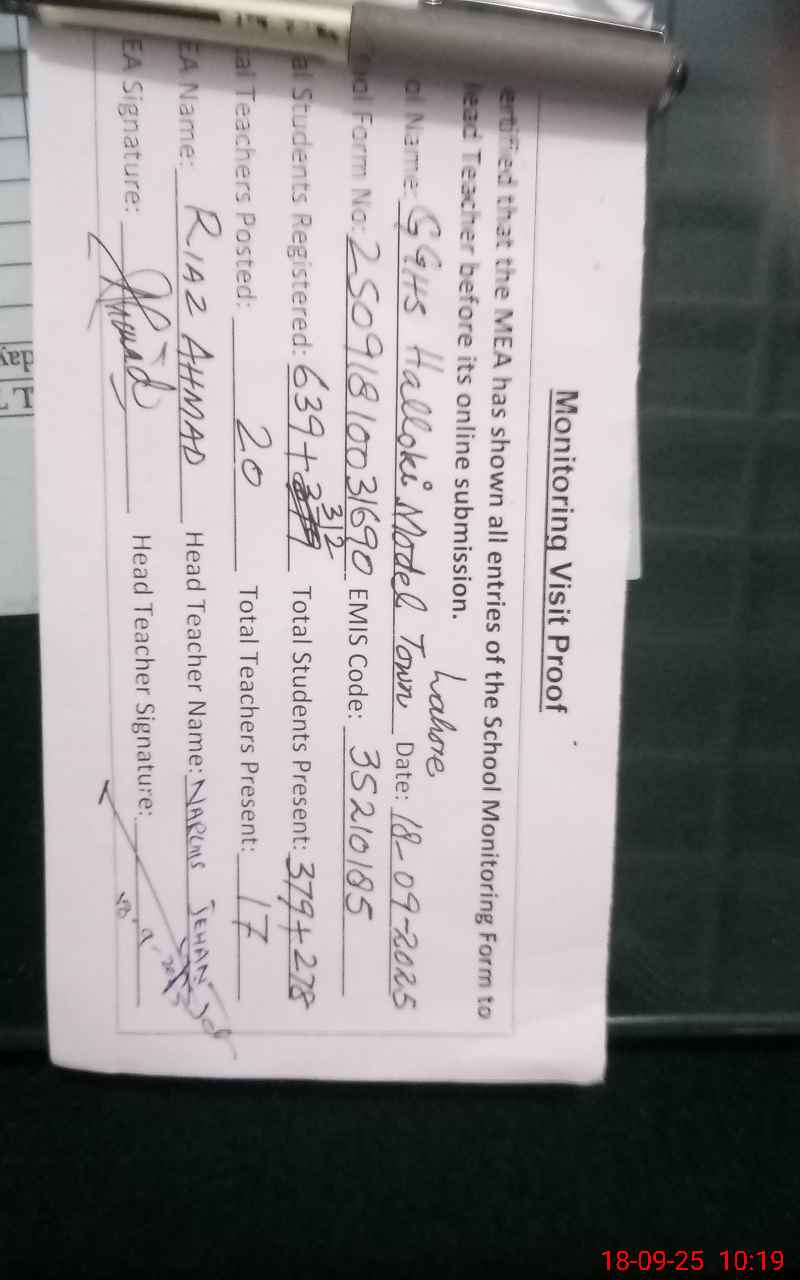 Monitoring Visit Proof
ertified that the MEA has shown all entries of the School Monitoring Form to
lead Teacher before its online submission.
ol Name: GGHS Halloki Model Town Lahore Date: 18-09-2025
ool Form No: 25091810031690 EMIS Code: 35210185
al Students Registered: 639+312 Total Students Present: 379+278
al Teachers Posted: 20 Total Teachers Present: 17
EA Name: RIAZ AHMAD Head Teacher Name: NARGIS JEHAN
EA Signature: Ahmad Head Teacher Signature:
day
18-09-25 10:19